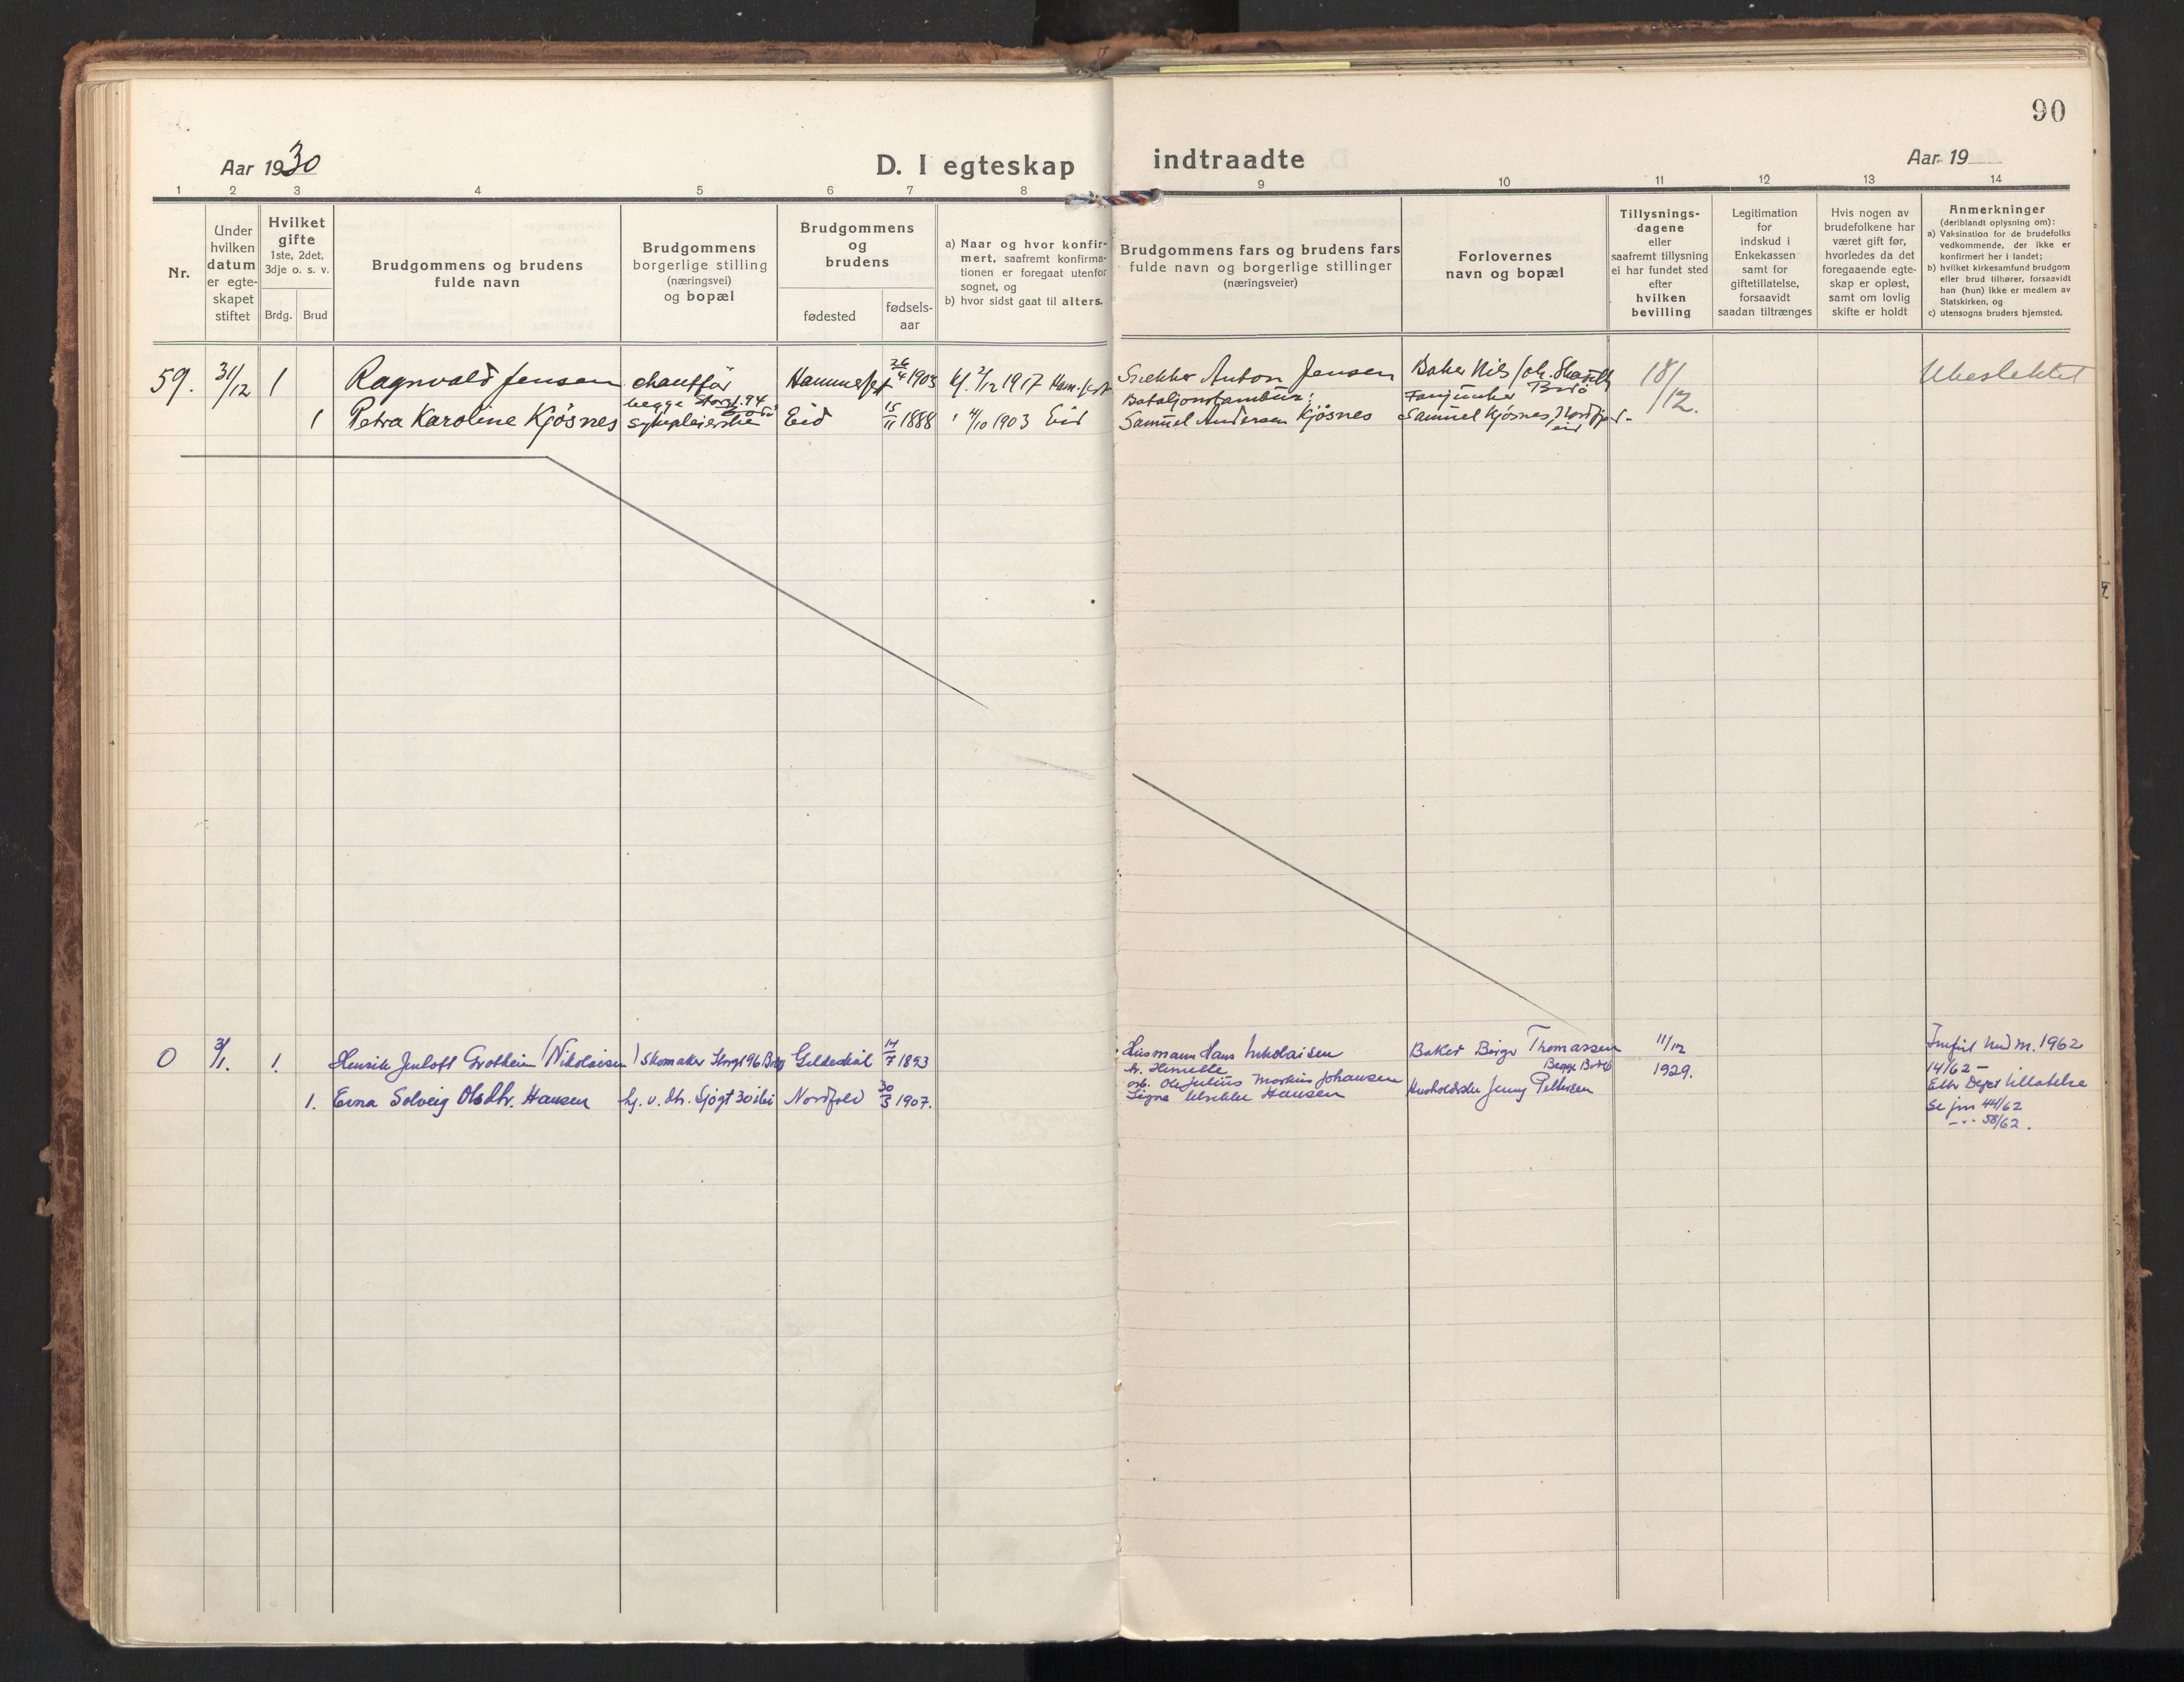 90
Aar 1930
D. I egteskap indtraadte
Aar 19
1 2 3 4 5 6 7 8 9 10 11 12 13 14
Nr.
Under
hvilken
datum
er egte-
skapet
stiftet
Hvilket
gifte
1ste, 2det,
3dje o. s. v.
Brdg.
Brud
Brudgommens og brudens
fulde navn
Brudgommens
borgerlige stilling
(næringsvei)
og bopæl
Brudgommens
og
brudens
fødested
fødsels-
aar
a) Naar og hvor konfir-
mert, saafremt konfirma-
tionen er foregaat utenfor
sognet, og
b) hvor sidst gaat til alters.
Brudgommens fars og brudens fars
fulde navn og borgerlige stillinger
(næringsveier)
Forlovernes
navn og bopæl
Tillysnings-
dagene
eller
saafremt tillysning
ei har fundet sted
efter
hvilken
bevilling
Legitimation
for
indskud i
Enkekassen
samt for
giftetillatelse,
forsaavidt
saadan tiltrænges
Hvis nogen av
brudefolkene har
været gift før,
hvorledes da det
foregaaende egte-
skap er opløst,
samt om lovlig
skifte er holdt
Anmerkninger
(deriblandt oplysning om):
a) Vaksination for de brudefolks
vedkommende, der ikke er
konfirmert her i landet;
b) hvilket kirkesamfund brudgom
eller brud tilhører, forsaavidt
han (hun) ikke er medlem av
Statskirken, og
c) utensogns bruders hjemsted.
59. 31/12 1 Ragnvald Jensen chauffør Hammerfest 26/4 1903 kf. 2/12 1917 Ham.fest Snekker Anton Jensen Baker Nils Joh. 18/12. Ubeslektet
begge Storgt. 94 Bodø Bataljonstambur: Fanjunker Bodø
1 Petra Karoline Kjösnes sykepleierske Eid 15/11 1888 " 4/10 1903 Eid Samuel Andersen Kjösnes Samuel Kjösnes, Nordfjord-
eid
0 3/1. 1. Henrik Jentoft Grotheim (Nikolaisen) Skomaker Storgt 96 Bodø Gildeskål 14/7 1893 Husmann Hans Nikolaisen Baker Birger Thomassen 11/12 Innført med m. 1962
Begge Bodø 1929. 14/62 –
1. Erna Solveig Olsdtr. Hansen hj. v. dtr. Sjøgt 30 ibi Nordfold 30/3 1907. arb. Ole Julius Markus Johansen Husholderske Jenny Pettersen Etter Depts tillatelse
Signe Hansen Se jnr 44/62
– " – 58/62.